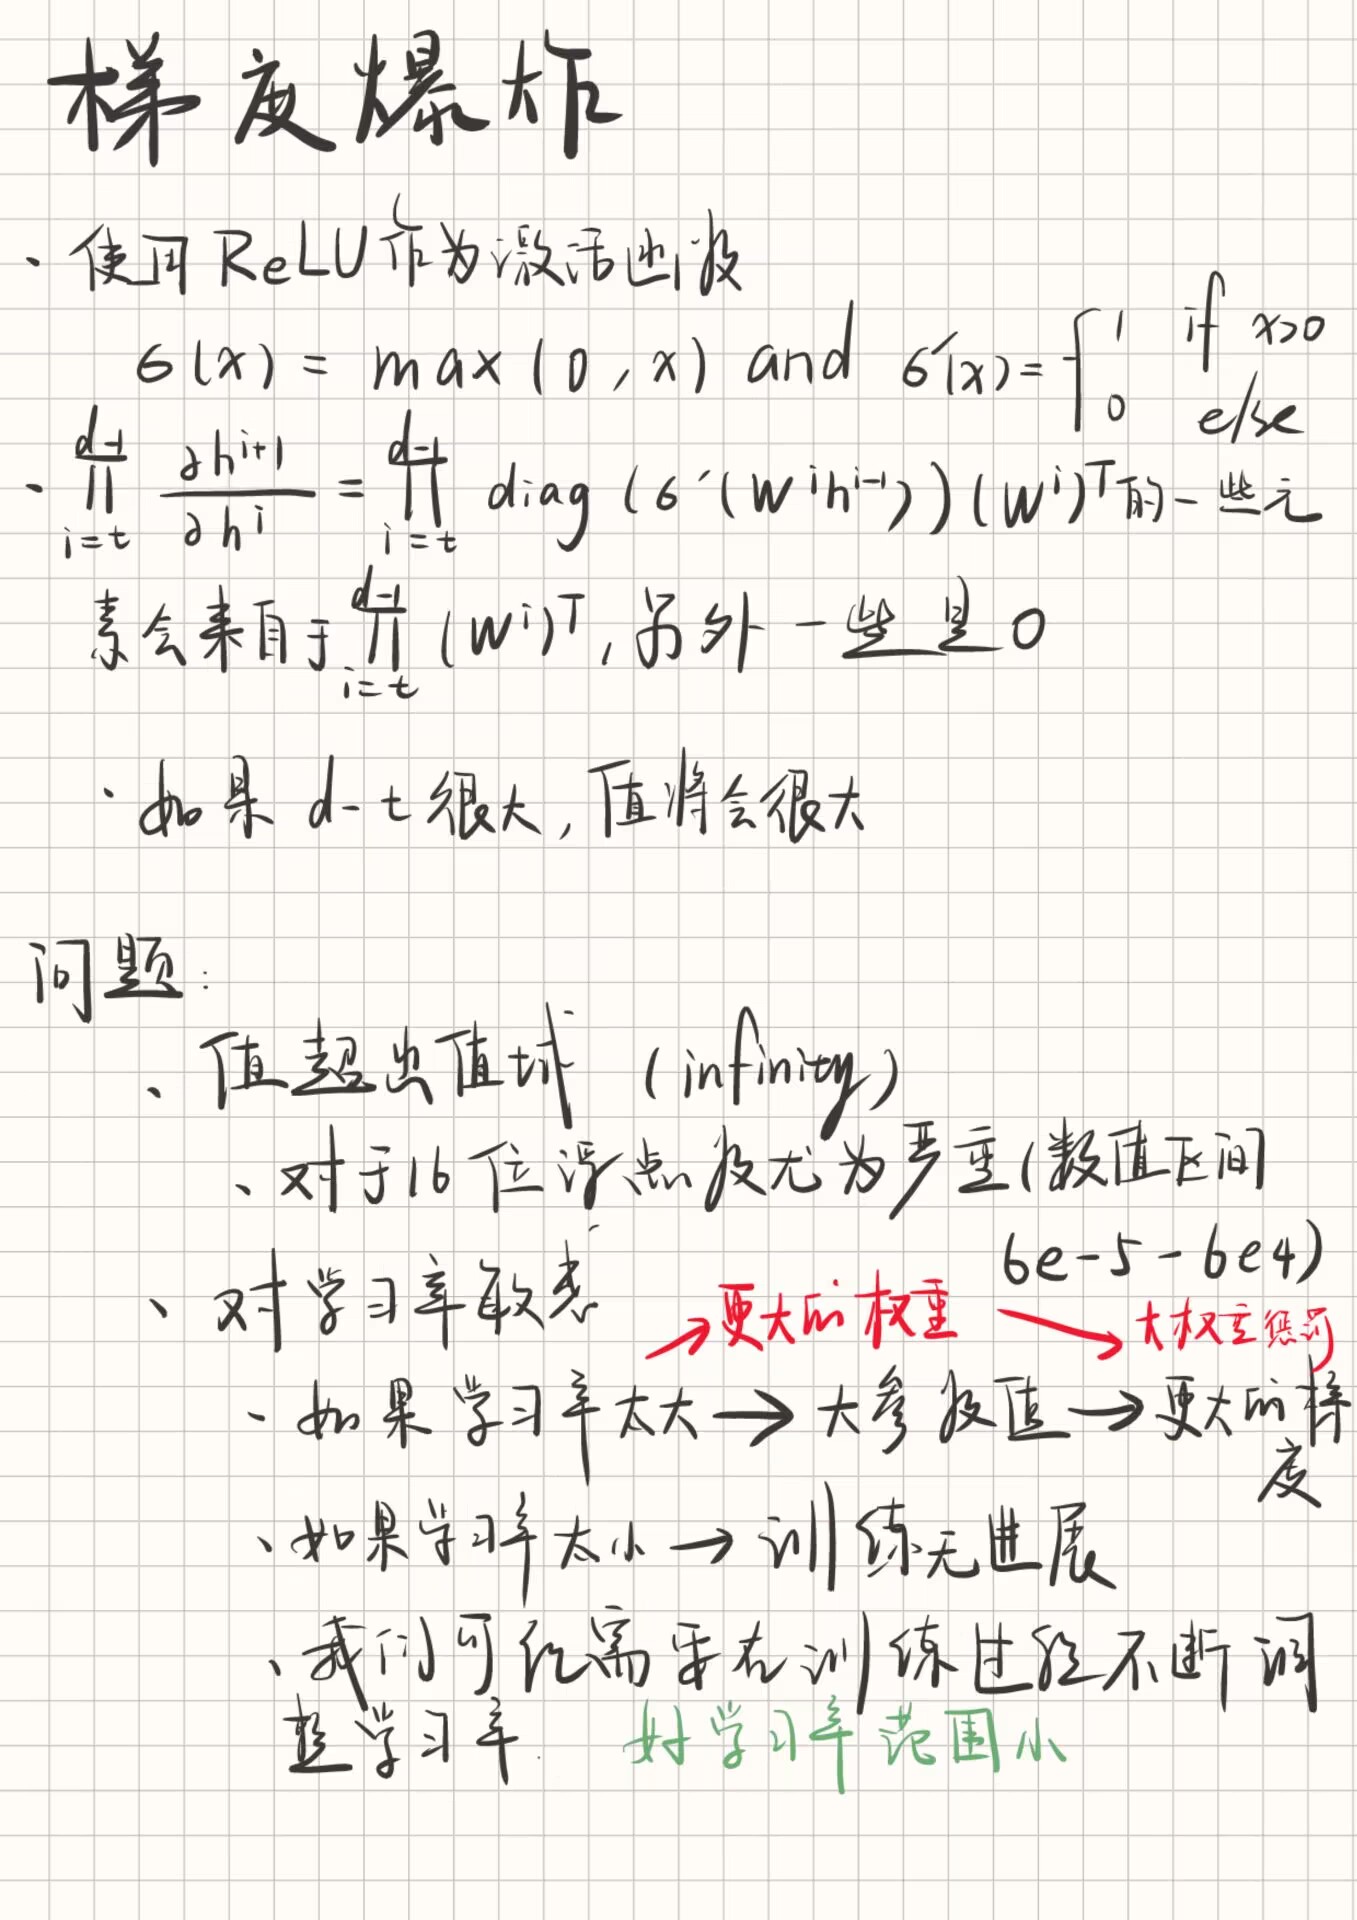 梯度爆炸
· 使用ReLU作为激活函数
σ(x) = max(0,x) and σ'(x) = { 1 if x>0
0 else
· ∏_{i=t}^{d-1} ∂h^{i+1}/∂h^i = ∏_{i=t}^{d-1} diag(σ'(W^i h^{i-1}))(W^i)^T 的一些元
素会来自于 ∏_{i=t}^{d-1} (W^i)^T, 另外一些是0
· 如果 d-t 很大, 值将会很大
问题:
、值超出值域 (infinity)
、对于16位浮点数尤为严重(数值区间
6e-5 - 6e4)
、对学习率敏感
→更大的权重 → 大权重惩罚
- 如果学习率太大→大参数值→更大的梯
度
、如果学习率太小→训练无进展
、我们可能需要在训练过程不断调
整学习率. 好学习率范围小